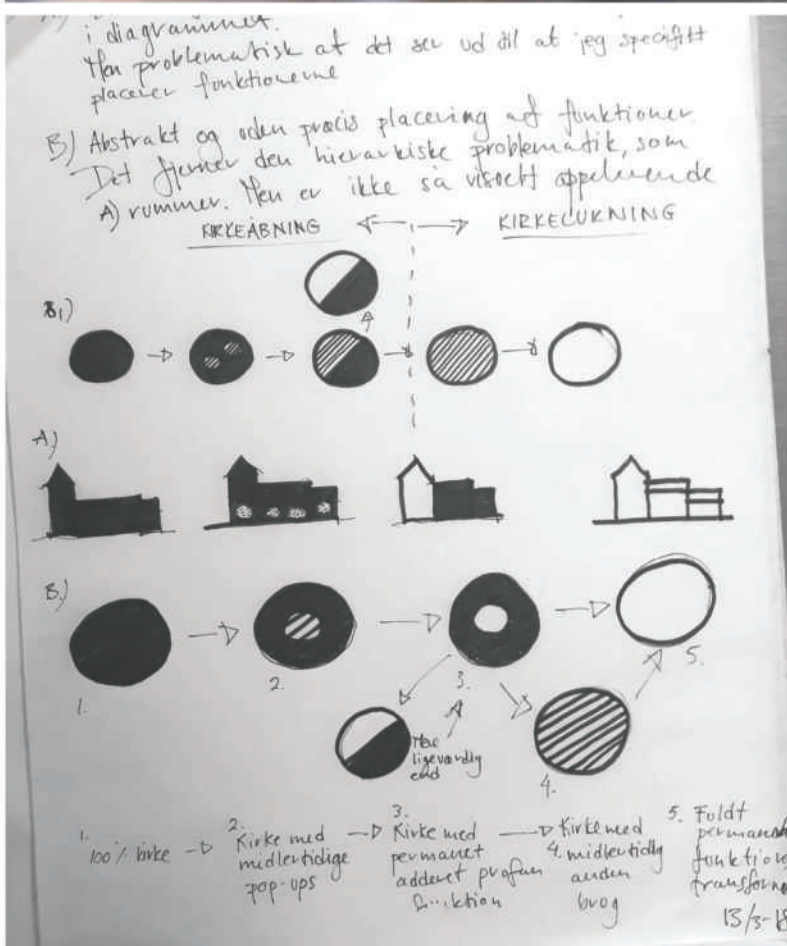 i diagrammet.
Men problematisk at det ser ud til at jeg specifikt
placerer funktionerne
B) Abstrakt og uden præcis placering af funktioner.
Det fjerner den hierarkiske problematik, som
A) rummer. Men er ikke så visuelt appelerende
KIRKEÅBNING KIRKELUKNING
B1)
A)
B)
1.
2.
3.
5.
Mere
ligeværdig
end
4.
1. 100% kirke
2. Kirke med
midlertidige
pop-ups
3. Kirke med
permanet
adderet profan
funktion
4. Kirke med
midlertidig
anden
brug
5. Foldt
permanent
funktions
transforme
13/3-18